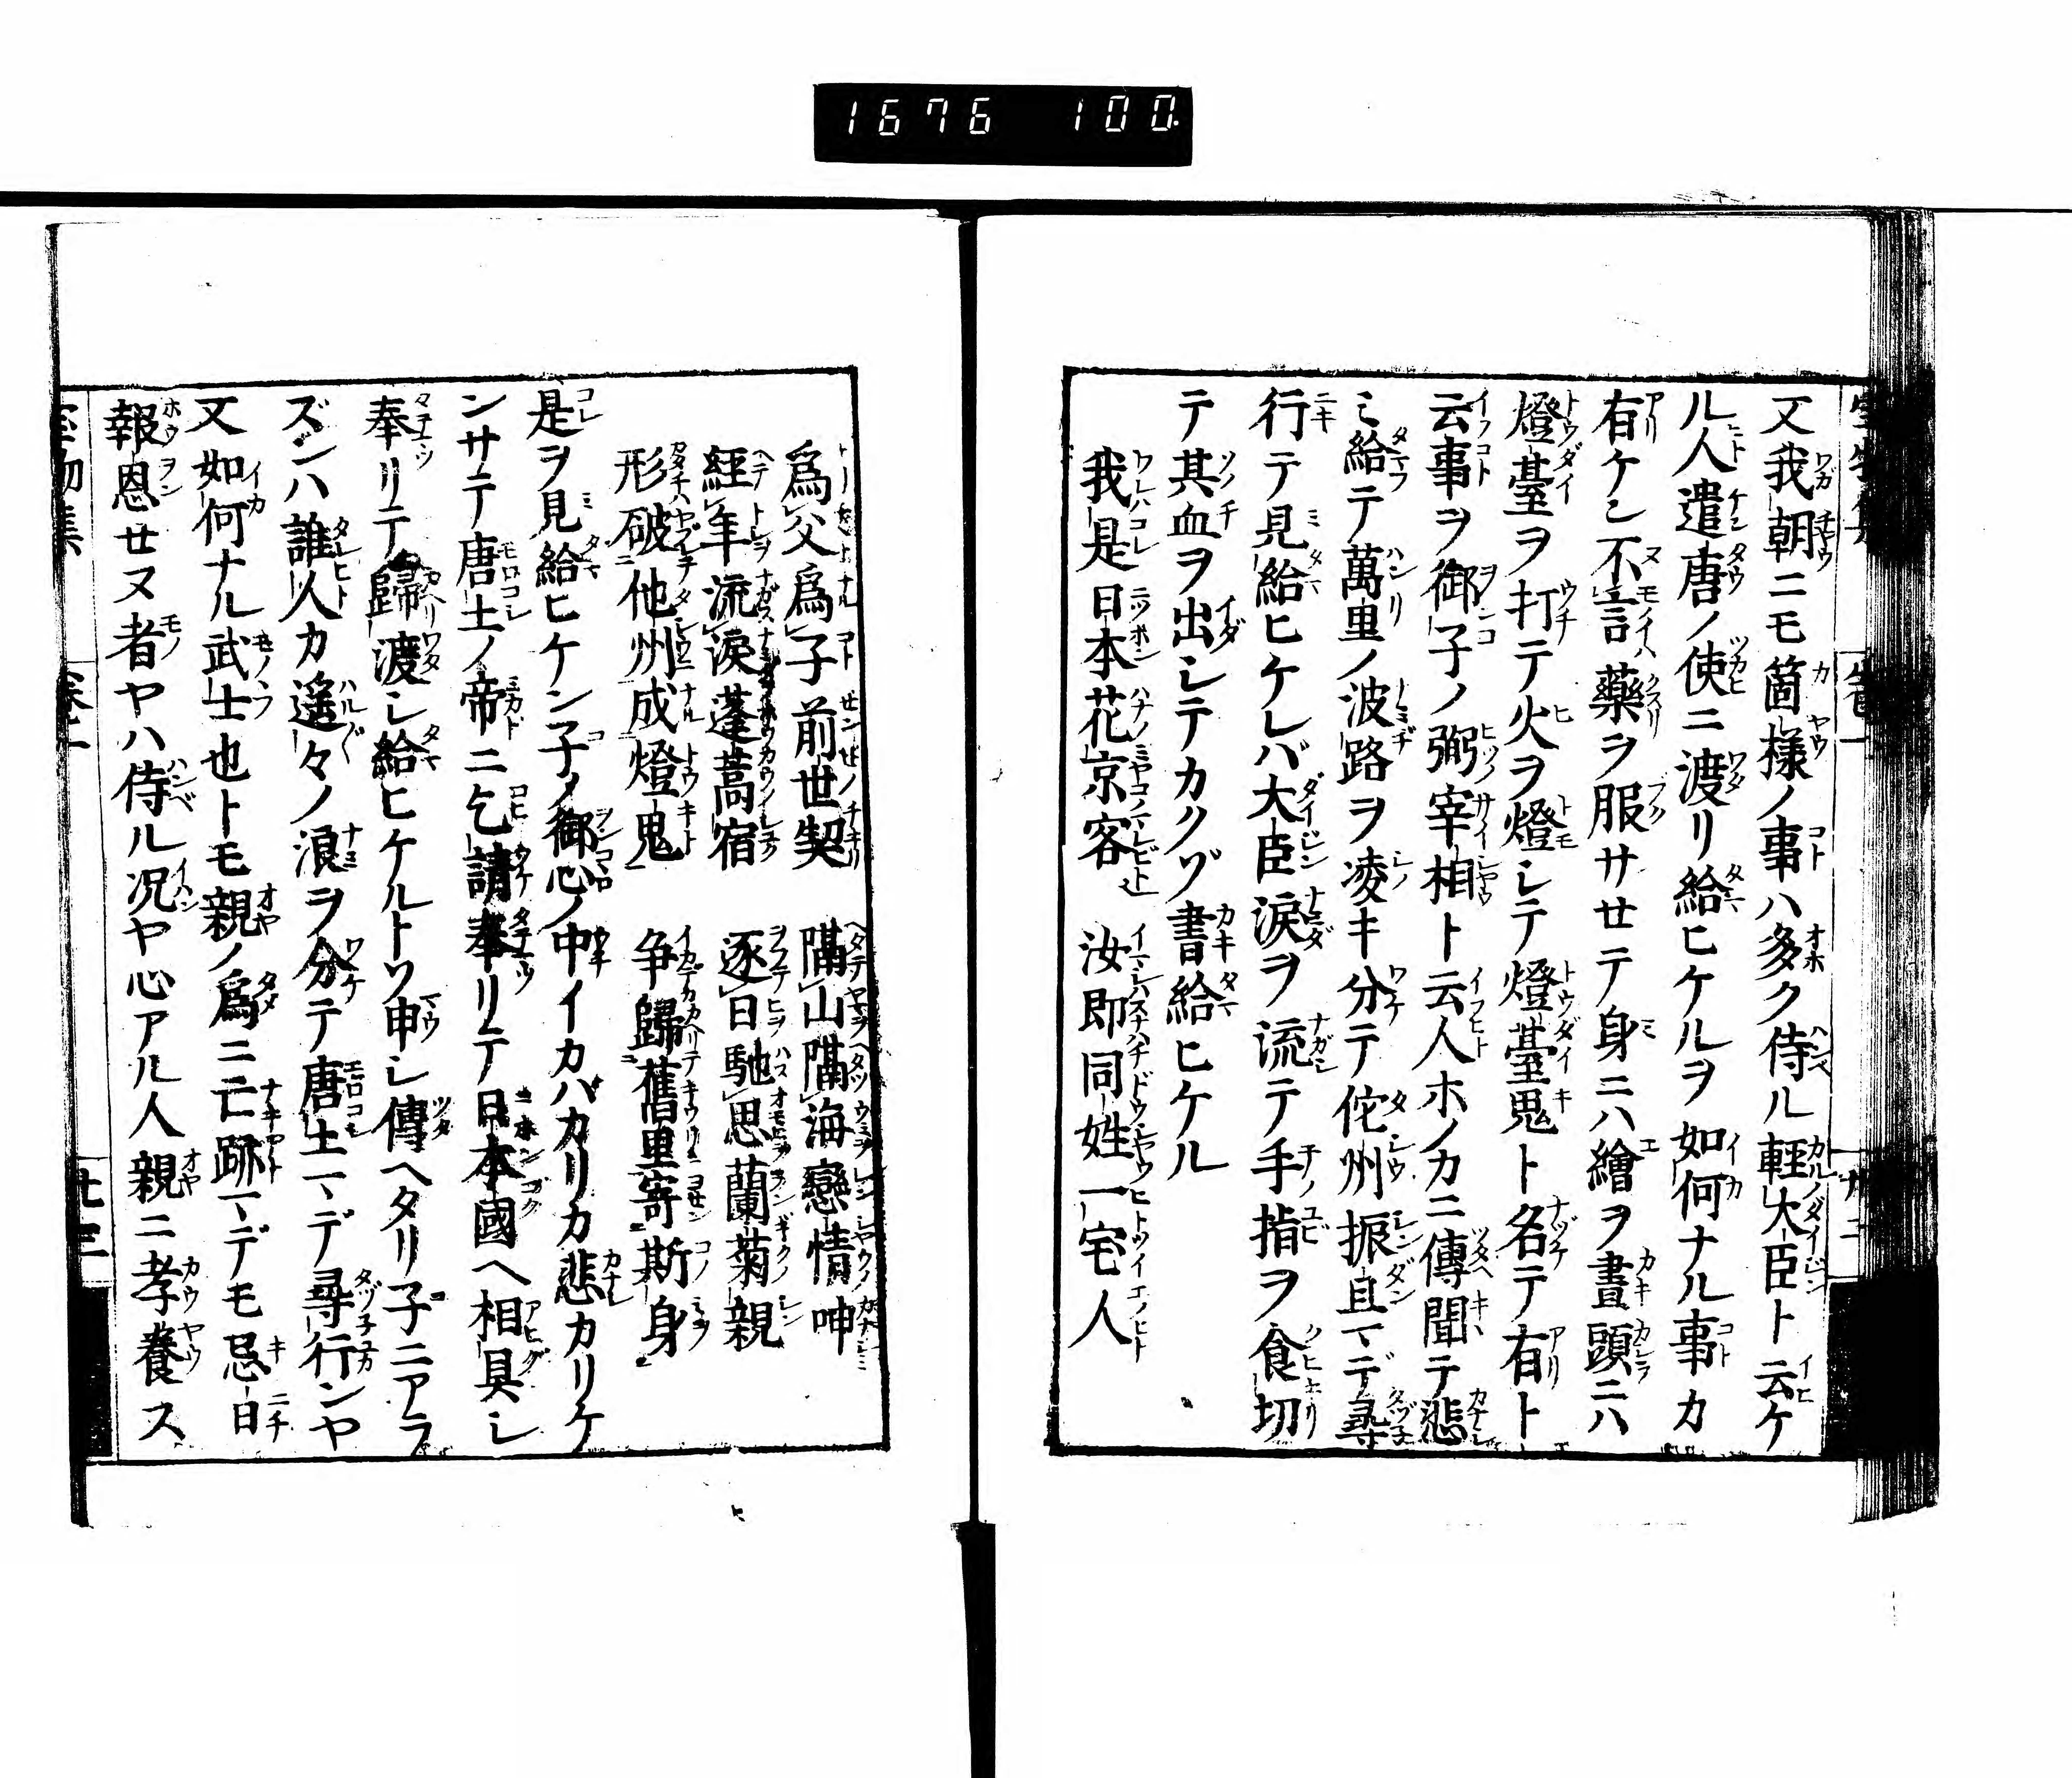 1676 100.
又我朝ニモ箇様ノ事ハ多ク侍ル輕大臣ト云ケ
ル人遣唐ノ使ニ渡リ給ヒケルヲ如何ナル事カ
有ケン不言藥ヲ服サセテ身ニハ繪ヲ畫頭ニハ
燈臺ヲ打テ火ヲ燈シテ燈臺鬼ト名テ有ト
云事ヲ御子ノ弼宰相ト云人ホノカニ傳聞テ悲
ミ給テ萬里ノ波路ヲ凌キ分テ佗州振旦マデ尋
行テ見給ヒケレバ大臣涙ヲ流テ手ノ指ヲ食切
テ其血ヲ出シテカクゾ書給ヒケル
我是日本花京客 汝即同姓一宅人
爲父爲子前世契 隔山隔海戀情呻
經年流涙蓬蒿宿 逐日馳思蘭菊親
形破他州成燈鬼 争歸舊里寄斯身
是ヲ見給ヒケン子ノ御心ノ中イカハカリカ悲カリケ
ンサテ唐土ノ帝ニ乞請奉リテ日本國ヘ相具シ
奉リテ歸渡シ給ヒケルトソ申シ傳ヘタリ子ニアラ
ズンハ誰人カ遥々ノ浪ヲ分テ唐土マデ尋行ンヤ
又如何ナル武士也トモ親ノ爲ニ亡跡マデモ忌日
報恩せヌ者ヤハ侍ル况ヤ心アル人親ニ孝養ス